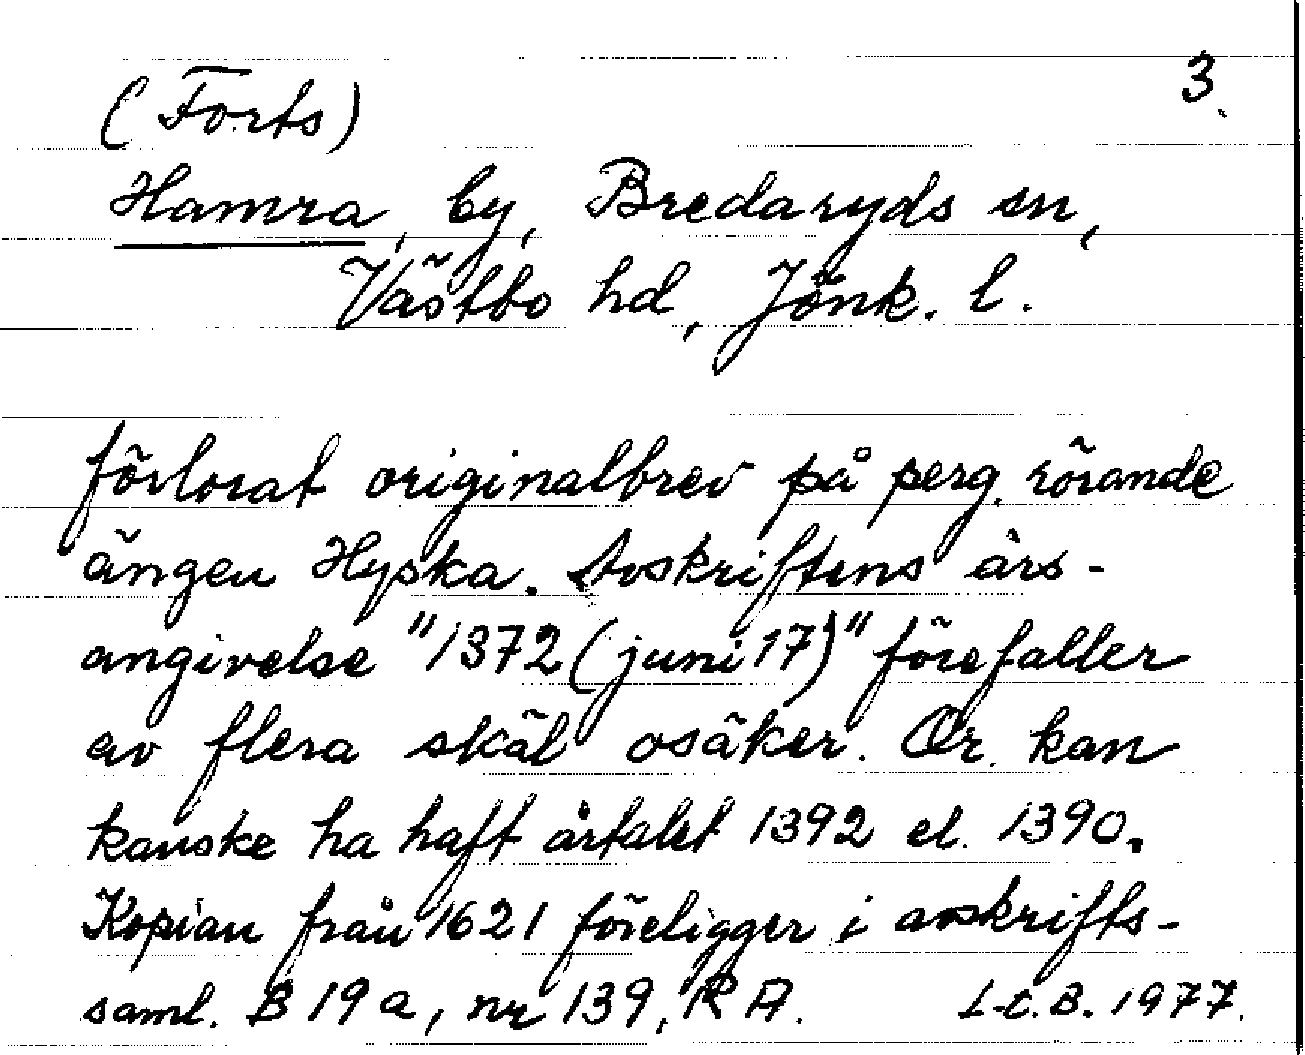 3.
(Forts)
Hamra, by, Bredaryds sn,
Västbo hd, Jönk. l.
förlorat originalbrev på perg. rörande
ängen Hyska. Avskriftens års-
angivelse "1372 (juni 17)" förefaller
av flera skäl osäker. Or. kan
kanske ha haft årtalet 1392 el. 1390.
Kopian från 1621 föreligger i avskrifts-
saml. B 19 a, nr 139, RA. L-E.B. 1977.